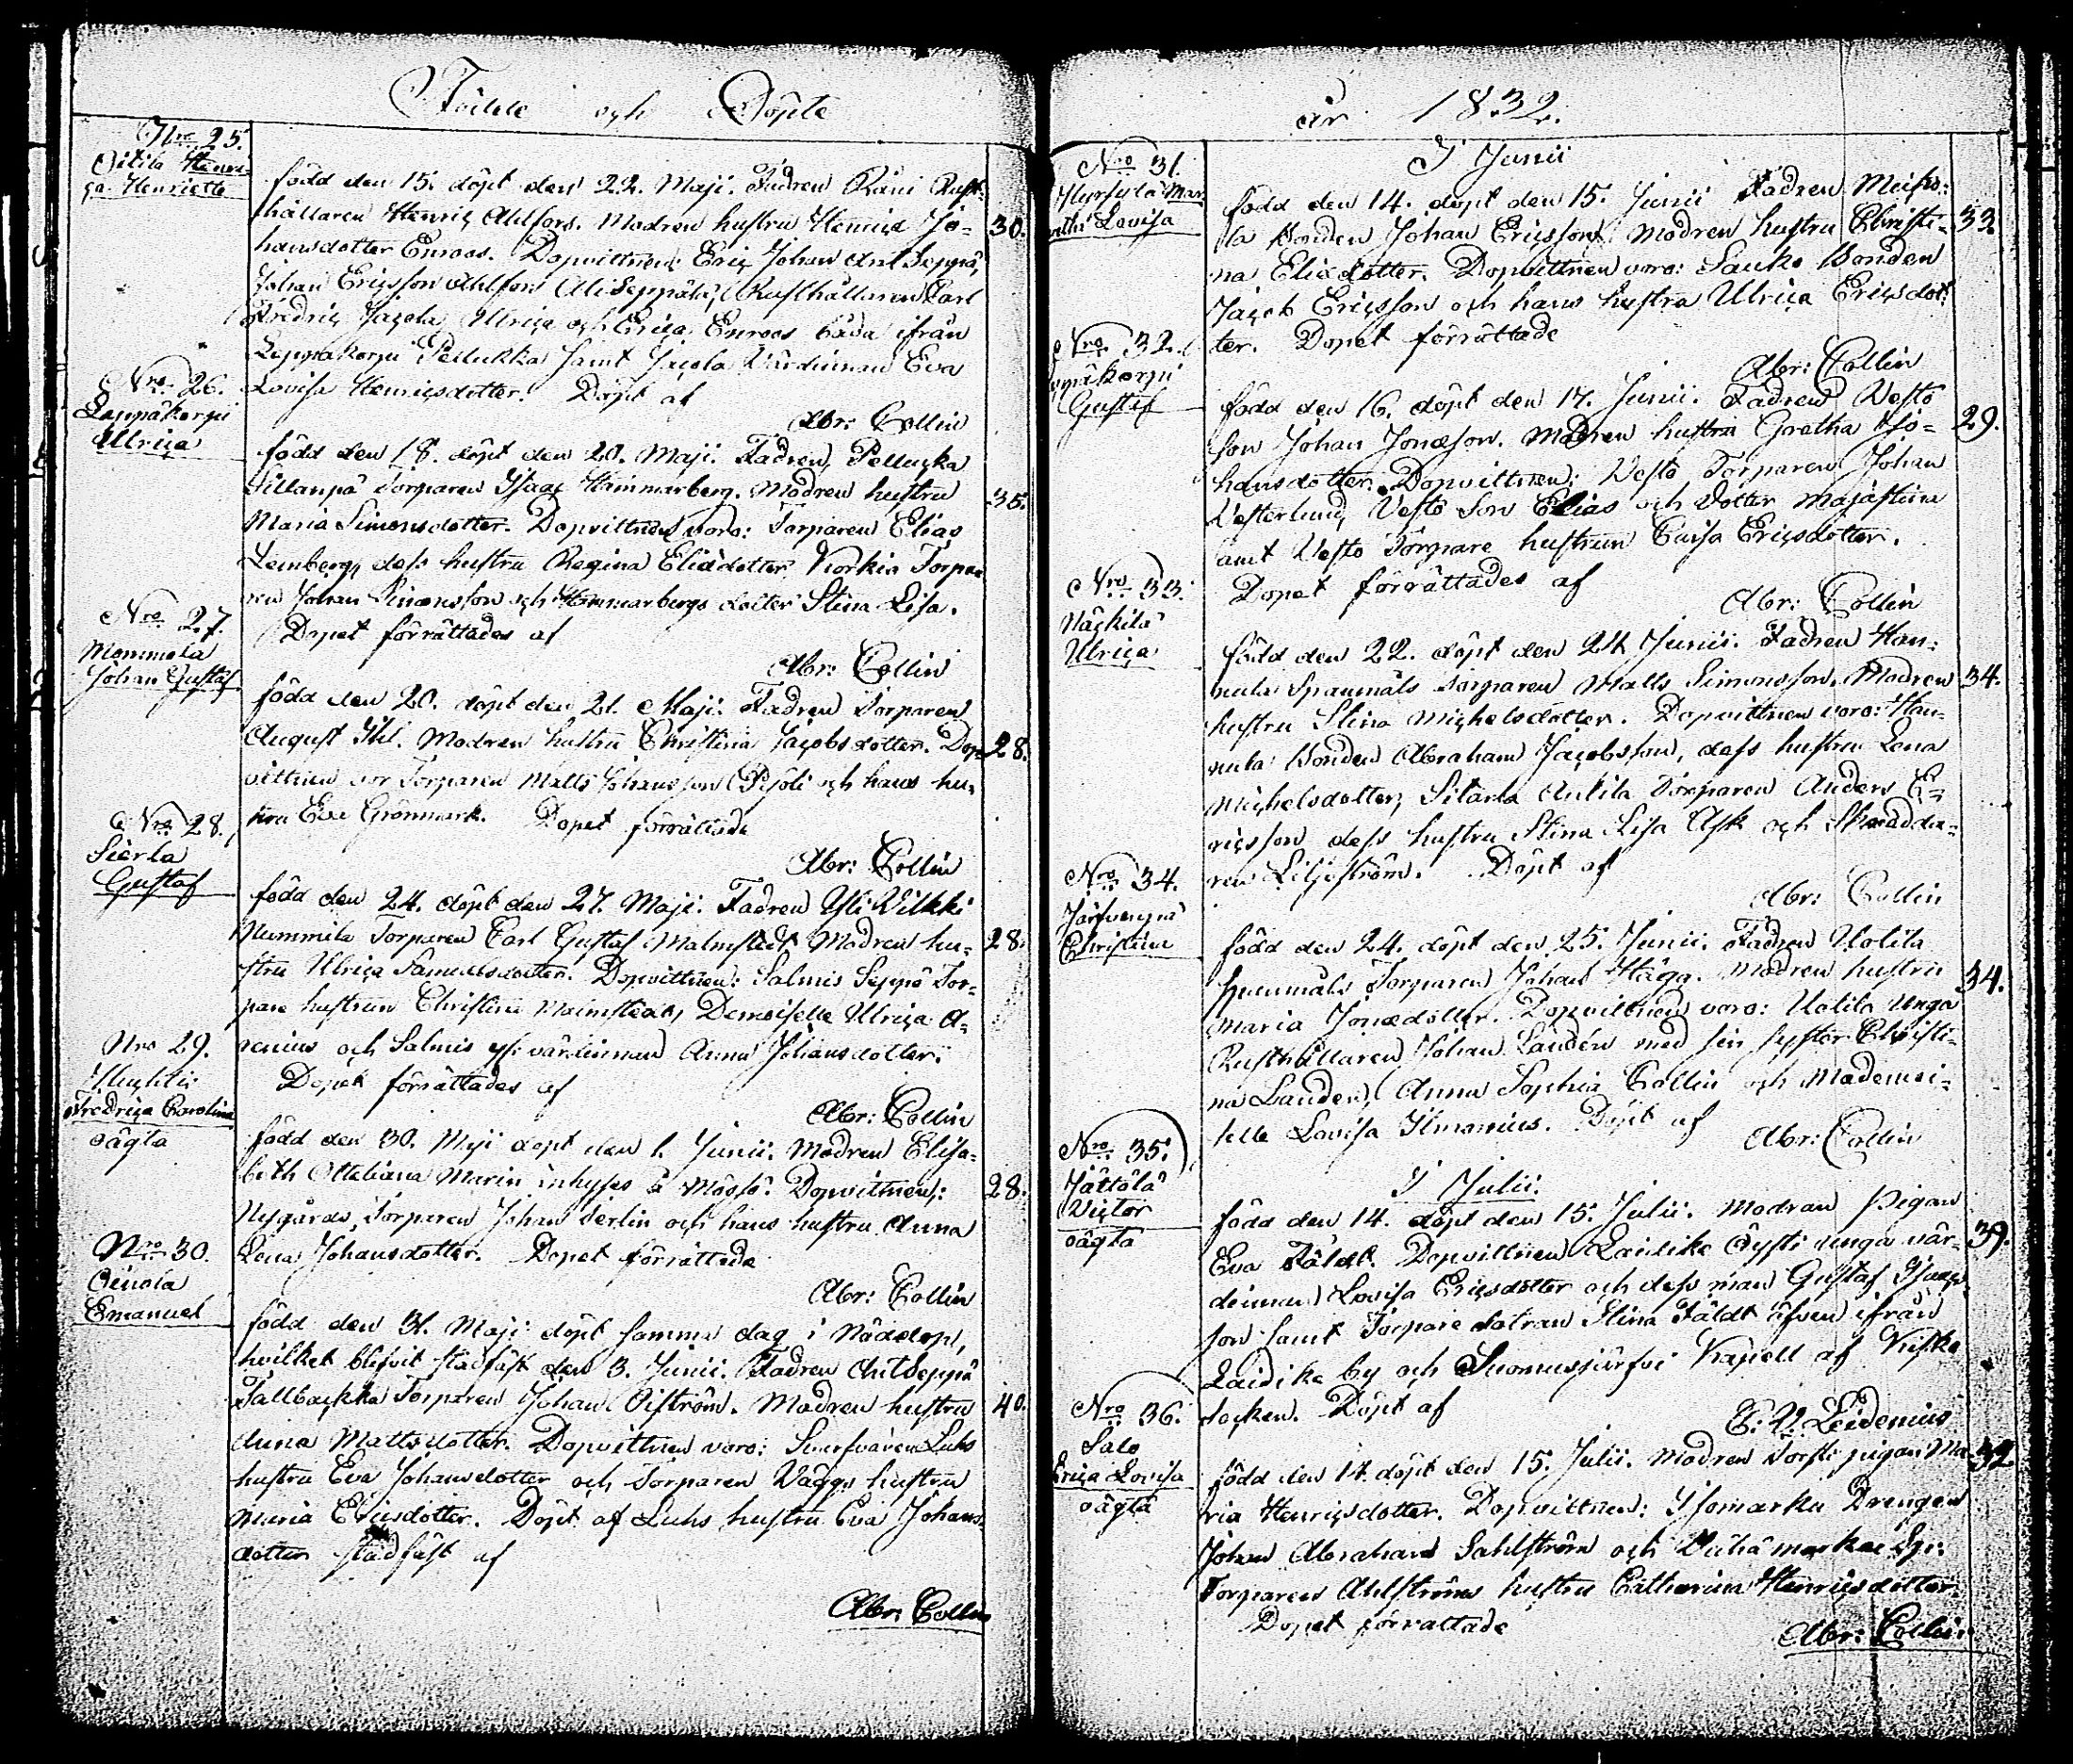 Födde och Döpte
Nro 25.
Henrietta
född den 15. döpt den 22. Maji. Fadren Räni Rust-
hållaren Henric Ahlfors. Modren hustru Henrica Jo- 30.
hansdotter Enroos. Dopvittnen: Eric Johan Antseppä,
Johan Ericsson Ahlfors Aliseppälä, Rusthållaren Carl
Fredric Jacola, Ulrica och Erica Enroos båda ifrån
Leppäkorpi Pellukka samt Jacola Värdinnan Eva
Lovisa Henricsdotter. Döpt af
Abr: Collin
Nro 26.
Leppäkorpi
Ulrica
född den 18. döpt den 20. Maji. Fadren Pellucka
Sillanpä Torparen Isaac Hammarberg. Modren hustru 35.
Maria Simonsdotter. Dopvittnen voro: Torparen Elias
Lemberg, dess hustru Regina Eliædotter Korkia Torpa
ren Johan Simonsson och Hammarbergs dotter Stina Lisa.
Dopet förrättades af
Abr: Collin
Nro 27.
Mommola
Johan Gustaf
född den 20. döpt den 21. Maji. Fadren Torparen
August Ihl. Modren hustru Christina Jacobsdotter. Dop- 28.
vittnen vor Torparen Matts Johansson och hans hu-
stru Eva Grönmark. Dopet förrättade
Abr: Collin
Nro 28.
Sierla
Gustaf
född den 24. döpt den 27. Maji. Fadren Yli Vilkki
Nummila Torparen Carl Gustaf Malmstedt Modren hu- 28.
stru Ulrica Samuelsdotter. Dopvittnen: Salmis Seppä Tor-
pare hustrun Christina Malmstedt, Demoiselle Ulrica A-
renius och Salmis värdinnan Anna Johansdotter.
Dopet förrättades af
Abr: Collin
Nro 29.
Fredrica Carolina
oägta
född den 30. Maji döpt den 1. Junii. Modren Elisa-
beth Ottiliana Marin inhyses å Mössö. Dopvittnen: 28.
Nygårds Torparen Johan Terlin och hans hustru Anna
Lena Johansdotter. Dopet förrättade
Abr: Collin
Nro 30.
Oinola
Emanuel
född den 31. Maji döpt samma dag i Nöddop,
hvilket blifvit stadfäst den 3. Junii. Fadren Antseppä
Tallbackka Torparen Johan Öiström. Modren hustru 40.
Anna Mattsdotter. Dopvittnen voro: Luhs
hustru Eva Johansdotter och Torparen Väggs hustru
Maria Eliædotter. Döpt af Luhs hustru Eva Johans-
dotter stadfäst af
Abr: Collin
år 1832.
I Junii
Nro 31.
Lovisa
född den 14. döpt den 15. Junii Fadren
la Bonden Johan Ericsson. Modren hustru Christi- 33.
na Eliædotter. Dopvittnen voro: Sauko Bonden
Jacob Ericsson och hans hustru Ulrica Ericsdot-
ter. Dopet förrättade
Abr: Collin
Nro 32.
Gustaf
född den 16. döpt den 17. Junii. Fadren Vesto
son Johan Jonæson. Modren hustru Gretha Jo- 29.
hansdotter. Dopvittnen: Vesto Torparen Johan
Vesterlund, Vesto Son Elias och dotter Majastina
samt Vesto Torpare hustrun Caisa Ericsdotter.
Dopet förrättades af
Abr: Collin
Nro 33.
Näckilä
Ulrica
född den 22. döpt den 24 Junii. Fadren Han-
nula Spannmåls Torparen Matts Simonsson. Modren 34.
hustru Stina Michelsdotter. Dopvittnen voro: Han-
nula Bonden Abraham Jacobsson, dess hustru Lena
Michelsdotter, Sitarla Ankila Torparen Anders E-
ricsson dess hustru Stina Lisa Ask och Skradda-
ren Liljeström. Döpt af
Abr: Collin
Nro 34.
Järfvenpä
Christina
född den 24. döpt den 25. Junii. Fadren Uotila
Spannmåls Torparen Johan Hägg. Modren hustru 34.
Maria Jonædotter. Dopvittnen voro: Uotila Unga
Rusthållaren Johan Landén med sin syster Christi-
na Landen, Anna Sophia Collin och Mademoi-
selle Lovisa Ilmonius. Döpt af
Abr: Collin
I Julii.
Nro 35.
Jättölä
Victor
oägta
född den 14. döpt den 15. Julii. Modran Pigan
Eva Fäldt. Dopvittnen Laidike Äysti unga vär- 39.
dinnan Lovisa Ericsdotter och dess man Gustaf Isaacs-
son samt Torpare dotran Stina Fäldt äfven ifrån
Laidike by och Suomusjärfvi Kapell af Kisko
Socken. Döpt af
Leidenius
Nro 36.
Salo
Erica Lovisa
oägta
född den 14. döpt den 15. Julii. Modren Torsti pigan Ma- 32
ria Henricsdotter. Dopvittnen: Isomarku Drengen
Johan Abraham Sahlström och Vähämarku
Torparen Ahlströms hustru Catharina Henricsdotter.
Dopet förrättade
Abr: Collin